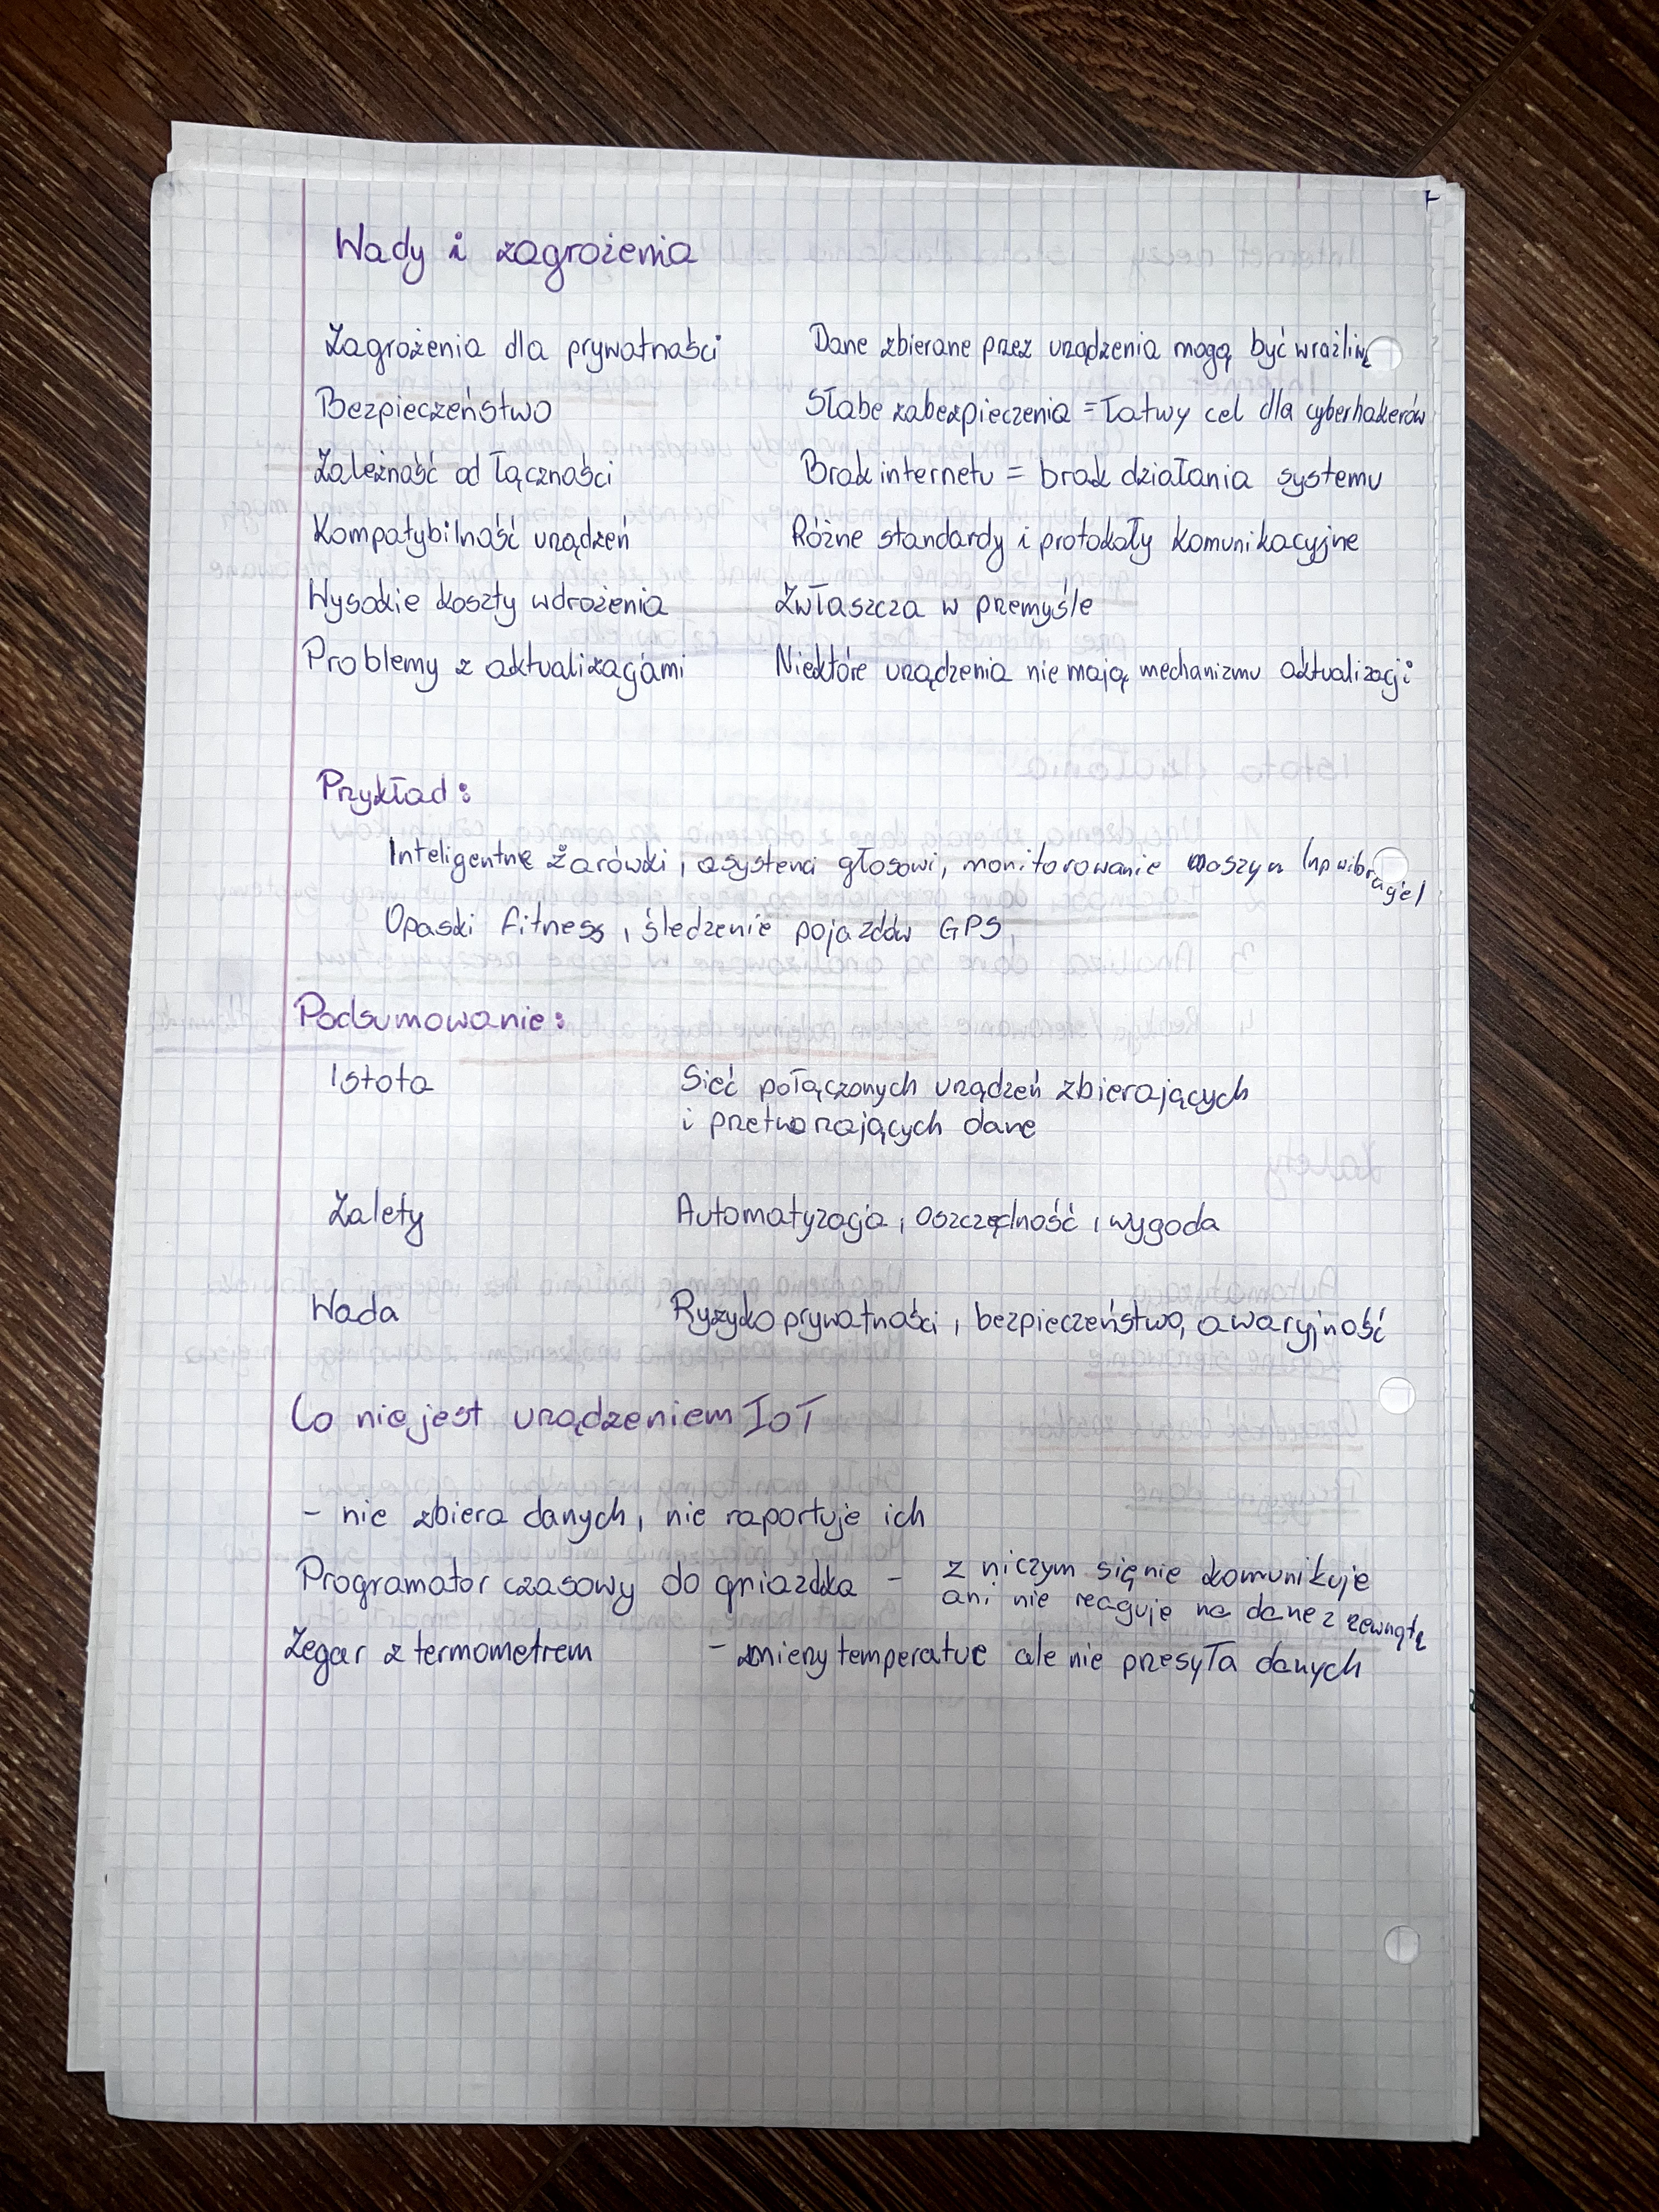 Wady i zagrożenia
Zagrożenia dla prywatności Dane zbierane przez urządzenia mogą być wrażliwe
Bezpieczeństwo Słabe zabezpieczenia = łatwy cel dla cyberhakerów
Zależność od łączności Brak internetu = brak działania systemu
Kompatybilność urządzeń Różne standardy i protokoły komunikacyjne
Wysokie koszty wdrożenia Zwłaszcza w przemyśle
Problemy z aktualizacjami Niektóre urządzenia nie mają mechanizmu aktualizacji
Przykład:
Inteligentne żarówki, asystenci głosowi, monitorowanie maszyn (np wibracje)
Opaski fitness, śledzenie pojazdów GPS
Podsumowanie:
Istota Sieć połączonych urządzeń zbierających
i przetwarzających dane
Zalety Automatyzacja, oszczędność, wygoda
Wada Ryzyko prywatności, bezpieczeństwo, awaryjność
Co nie jest urządzeniem IoT
- nie zbiera danych, nie raportuje ich
Programator czasowy do gniazdka - z niczym się nie komunikuje
ani nie reaguje na dane z zewnątz
Zegar z termometrem - zmieny temperature ale nie przesyła danych